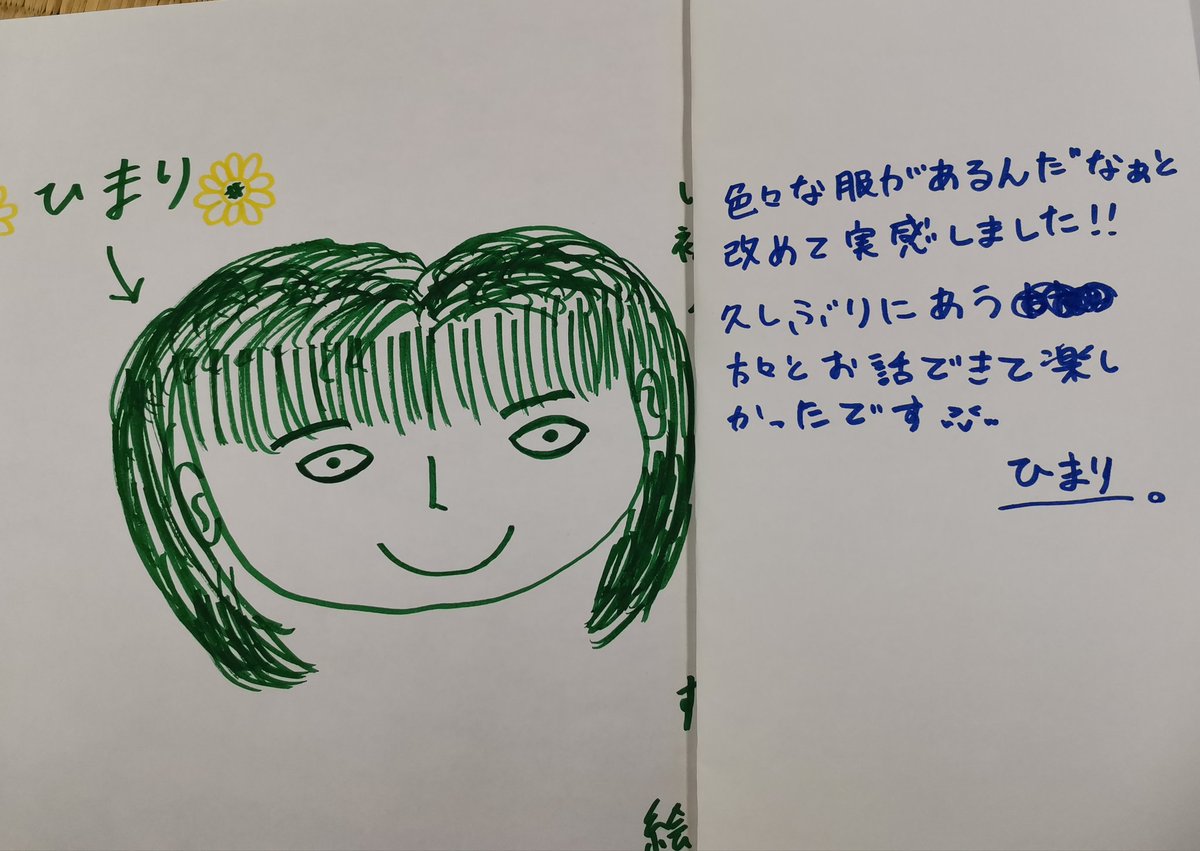 ひまり
色々な服があるんだなぁと
改めて実感しました!!
久しぶりにあう
方々とお話できて楽し
かったです
ひまり。
す
絵